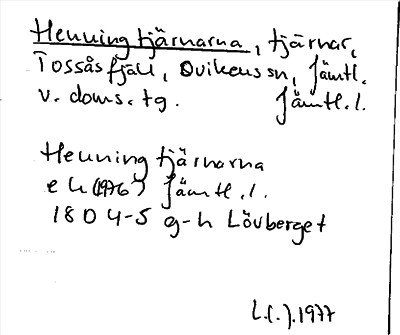 Henningtjärnarna, tjärnar,
Tossåsfjäll, Ovikens sn, Jämtl.
v. doms. tg. Jämtl. l.
Henningtjärnarna
e k (1976) Jämtl. l.
18 D 4-5 g-h Lövberget
L.(.).1977